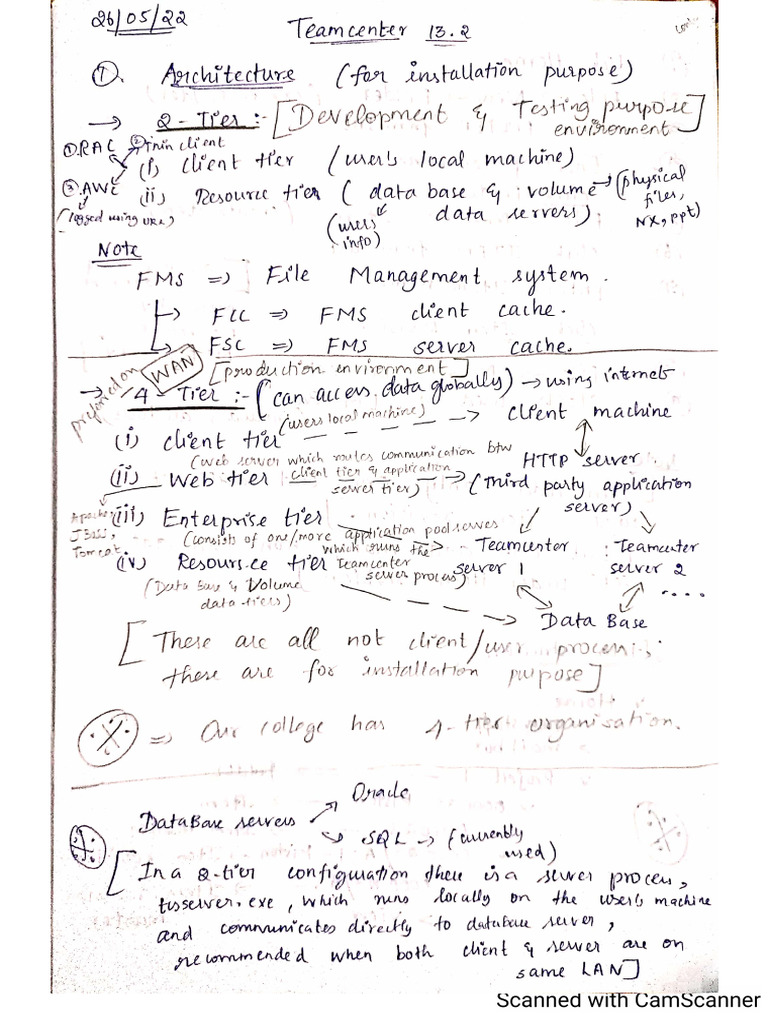 26/05/22
Teamcenter 13.2
①. Architecture (for installation purpose)
→ 2-Tier :- [Development & Testing purpose environment]
① RAC ② Thin client
(i) client tier (user's local machine)
③ AWC (ii) Resource tier (data base & volume → (physical files, NX, ppt)
(logged using URL) data servers)
(users info)
Note
FMS => File Management system.
→ FCC => FMS client cache.
→ FSC => FMS server cache.
preferred on WAN [production environment]
→ 4-Tier :- (can access data globally) → using internet
(i) client tier (users local machine) ---> client machine
(ii) Web tier (web server which routes communication btw client tier & application server tier) --->
HTTP server
(Third party application server)
Apache, JBoss, Tomcat.
(iii) Enterprise tier
(consists of one/more application pool servers which runs the Teamcenter server process)
Teamcenter server 1
Teamcenter server 2
....
(iv) Resource tier
(Data Base & Volume data tiers)
---> Data Base
[These are all not client/user process;
these are for installation purpose]
=> Our college has 4-tier organisation.
DataBase servers → Oracle
→ SQL → (currently used)
[In a 2-tier configuration there is a server process,
tcserver.exe, which runs locally on the user's machine
and communicates directly to database server,
recommended when both client & server are on
same LAN]
Scanned with CamScanner